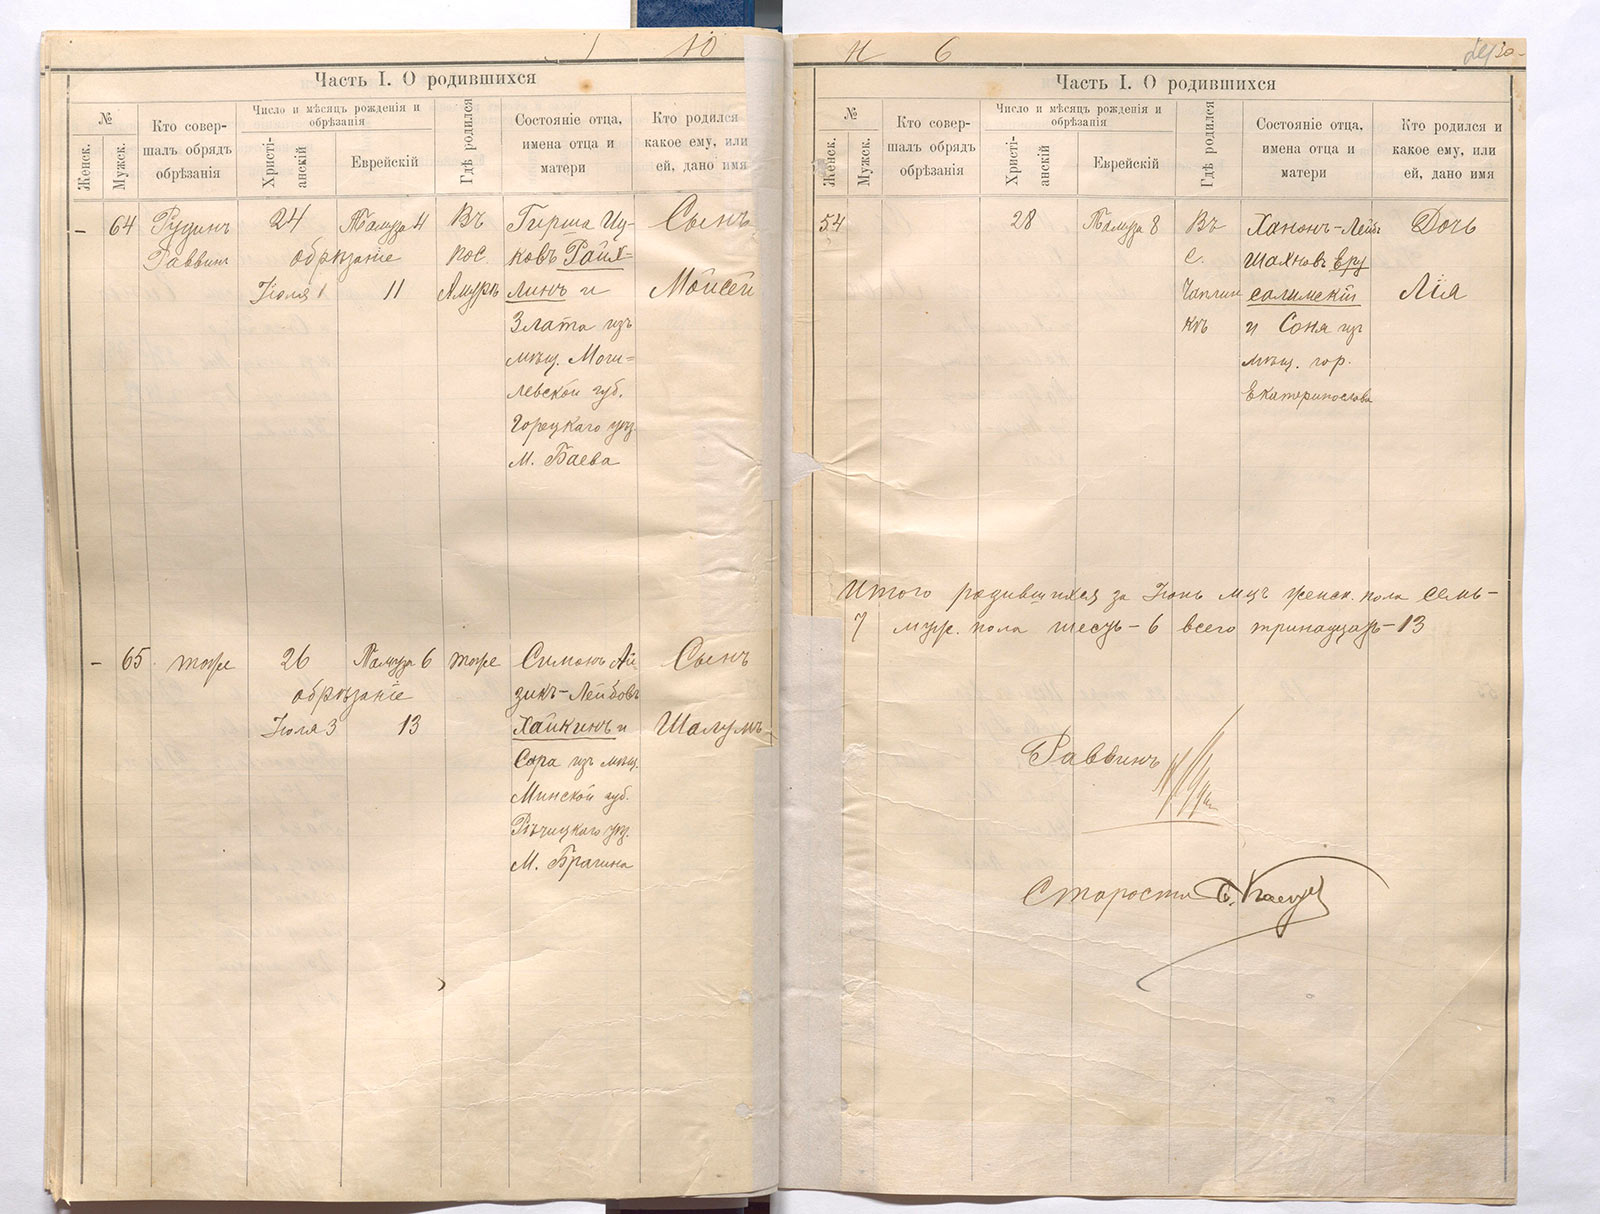 10
Часть I. О родившихся
№
Женск.
Мужск.
Кто совер-
шалъ обрядъ
обрѣзанія
Число и мѣсяцъ рожденія и
обрѣзанія
Христі-
анскій
Еврейскій
Гдѣ родился
Состояніе отца,
имена отца и
матери
Кто родился
какое ему, или
ей, дано имя
– 64
Рудинъ
Раввинъ
24
обрѣзаніе
Іюля 1
Тамуза 4
11
Въ
пос.
Амуръ
Гирша Иц-
ковъ Райх-
линъ и
Злата изъ
мѣщ. Моги-
левской губ.
Горецкаго уѣз.
м. Баева
Сынъ
Мойсей
– 65
тоже
26
обрѣзаніе
Іюля 3
Тамуза 6
13
тоже
Симонъ Ай-
зикъ-Лейбовъ
Хайкинъ и
Сора изъ мѣщ.
Минской губ.
Рѣчицкаго уѣз.
м. Брагина
Сынъ
Шалумъ
6
Часть I. О родившихся
№
Женск.
Мужск.
Кто совер-
шалъ обрядъ
обрѣзанія
Число и мѣсяцъ рожденія и
обрѣзанія
Христі-
анскій
Еврейскій
Гдѣ родился
Состояніе отца,
имена отца и
матери
Кто родился и
какое ему, или
ей, дано имя
54
28
Тамуза 8
Въ
с.
Чаплин
кѣ
Ханонъ-Лейб
Шахновъ Еру
салимскій
и Соня изъ
мѣщ. гор.
Екатеринослава
Дочь
Лія
Итого родившихся за Іюнь мцъ женск. пола семь –
7 муж. пола шесть – 6 всего тринадцать – 13
Раввинъ
Староста